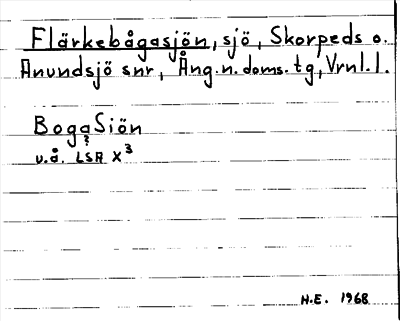 Flärkebågasjön, sjö, Skorpeds o.
Anundsjö snr, Ång. n. doms. tg, Vrnl. l.
BogaSiön
?
u.å. LSA X³
H.E. 1968